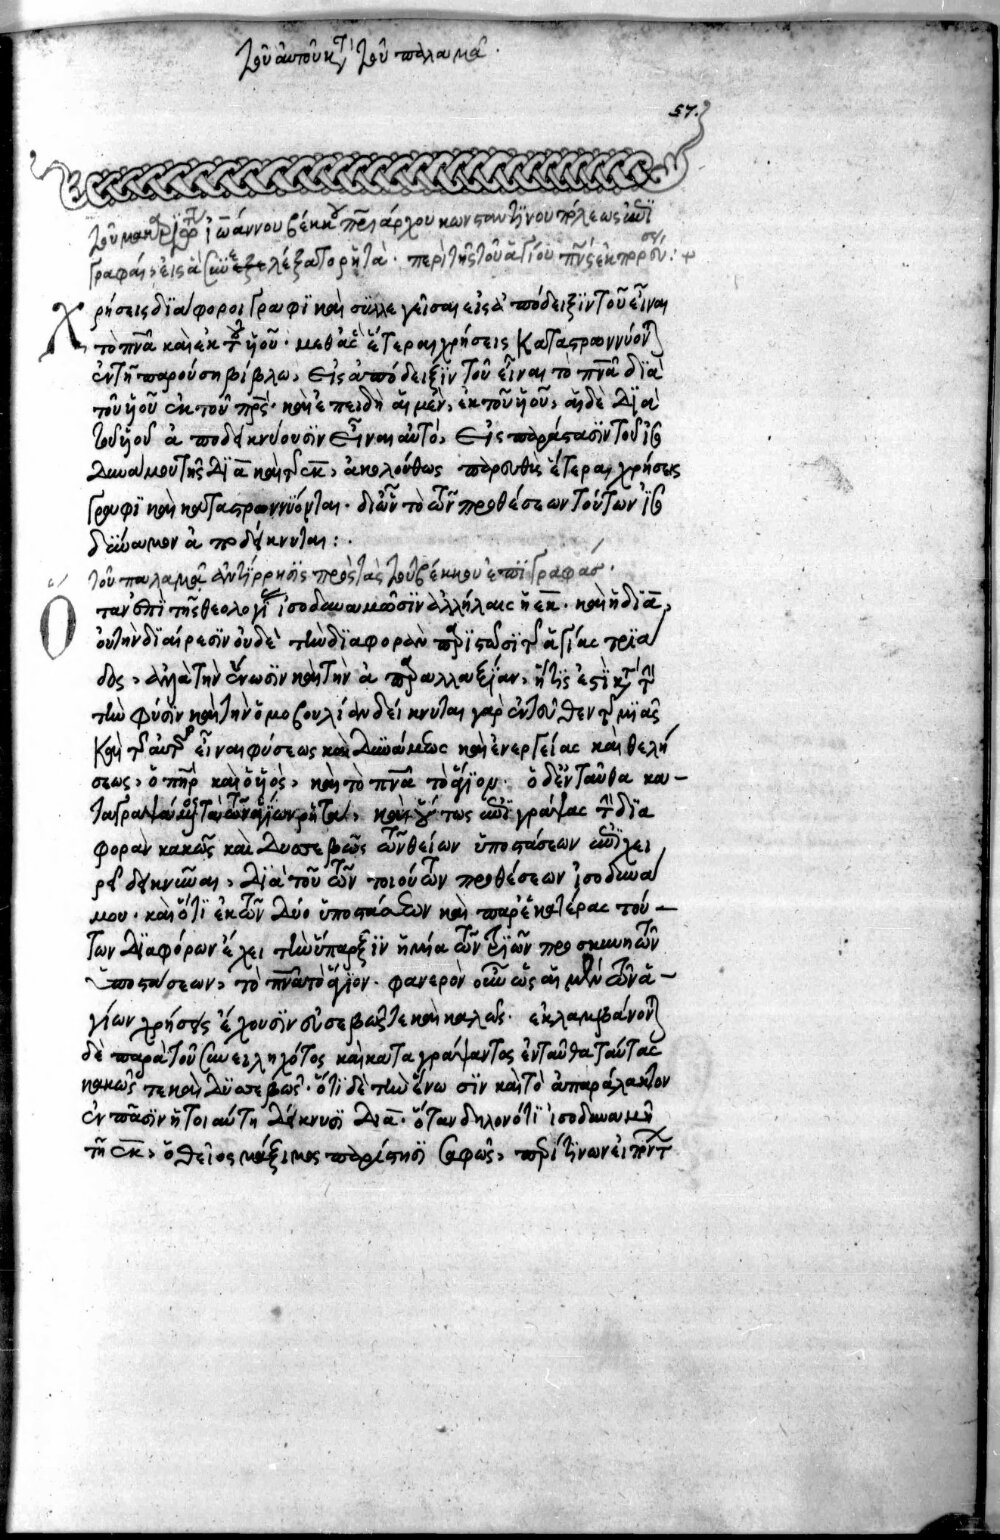 τοῦ αὐτοῦ κ(α)τ(ὰ) τοῦ παλαμᾶ.
57.
τοῦ μακαριωτ ἰωάννου βέκκου πριάρχου κωνσταντίνου πόλεως ἐπὶ
γραφαί, εἰς ἃ συνελέξατο ῥητὰ. περὶ τῆς τοῦ ἁγίου πνς ἐκπορεύσ:+
χρήσεις διάφοροι γραφικαὶ συλλεγεῖσαι εἰς ἀπόδειξιν τοῦ εἶναι
τὸ πνᾶ καὶ ἐκ τοῦ ὑιοῦ. μεθ' ἃς ἕτεραι χρήσεις καταστρωννύον
ἐν τῆ παρούση βίβλω, εἰς ἀπόδειξιν τοῦ εἶναι τὸ πνᾶ διὰ
τοῦ ὑιοῦ ἐκ τοῦ πρς. καὶ ἐπειδὴ αἱ μὲν, ἐκ τοῦ ὑιοῦ, αἱ δὲ διὰ
τοῦ ὑιοῦ ἀποδεικνύουσιν εἶναι αὐτό, εἰς παράστασιν τοῦ ἰσο
δυναμοῦ τῆς διὰ καὶ τῆς ἐκ, ἀκολούθως παρευθὺς ἕτεραι χρήσεις
γραφικαὶ καταστρωννύονται. δι' ὧν τὸ τῶν προθέσεων τούτων ἰσο
δύναμον ἀποδείκνυται:.
τοῦ παλαμᾶ ἀντίρρησις πρὸς τὰς τοῦ βέκκου ἐπιγραφάς.
Ὅταν ἐπὶ τῆς θεολογί ἰσοδυναμῶσιν ἀλλήλαις ἡ ἐκ. καὶ ἡ διὰ,
οὐ τὴν διαίρεσιν οὐδὲ τὴν διαφορὰν παριστῶσι τῆς ἁγίας τριά
δος, ἀλλὰ τὴν ἕνωσιν καὶ τὴν ἀπαραλλαξίαν, ἥτις ἐστὶ κατὰ
τὴν φύσιν καὶ τὴν ὁμοβουλίαν δείκνυται γὰρ ἐντεῦθεν τῆς μιᾶς
καὶ τῆς αὐτῆς εἶναι φύσεως καὶ δυνάμεως καὶ ἐνεργείας καὶ θελή
σεως, ὁ πηρ καὶ ὁ ὑιός, καὶ τὸ πνᾶ τὸ ἅγιον. ὁ δ' ἐνταῦθα κα-
ταγραψάμενος τὰ τῶν ἁγίων ῥητὰ, καὶ οὕτως ἐπιγράψας τὴν δια
φορὰν κακῶς καὶ δυσσεβῶς τῶν θείων ὑποστάσεων ἐπιχει
ρεῖ δεικνῦναι, διὰ τοῦ τῶν τοιούτων προθέσεων ἰσοδυνά
μου. καὶ ὅτι ἐκ τῶν δύο ὑποστάσεων καὶ παρ' ἑκατέρας τού-
των διαφόρων ἔχει τὴν ὕπαρξιν ἡ μία τῶν τριῶν προσκυνητῶν
ὑποστάσεων, τὸ πνᾶ τὸ ἅγιον. φανερὸν οὖν ὡς αἱ μὲν τῶν ἁ-
γίων χρήσεις ἔχουσιν εὐσεβῶς τε καὶ καλῶς. ἐκλαμβάνον
δὲ παρὰ τοῦ συνειληχότος καὶ καταγράψαντος ἐνταῦθα ταύτας
κακῶς τε καὶ δυσσεβῶς. ὅτι δὲ τὴν ἕνωσιν καὶ τὸ ἀπαράλακτον
ἐν πᾶσιν ἡ τοιαύτη δείκνυσι διὰ. ὅταν δηλονότι ἰσοδυναμῆ
τῆ ἐκ, ὁ θεῖος μάξιμος παρίστησι σαφῶς,